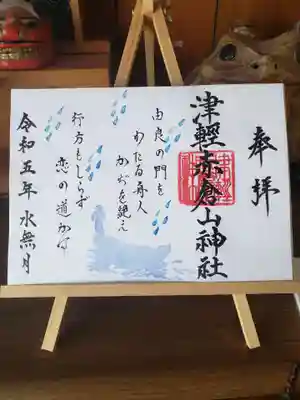 奉拝
津輕赤倉山神社
由良の門を
わたる舟人
かぢを絶え
行方もしらず
恋の道かな
令和五年 水無月